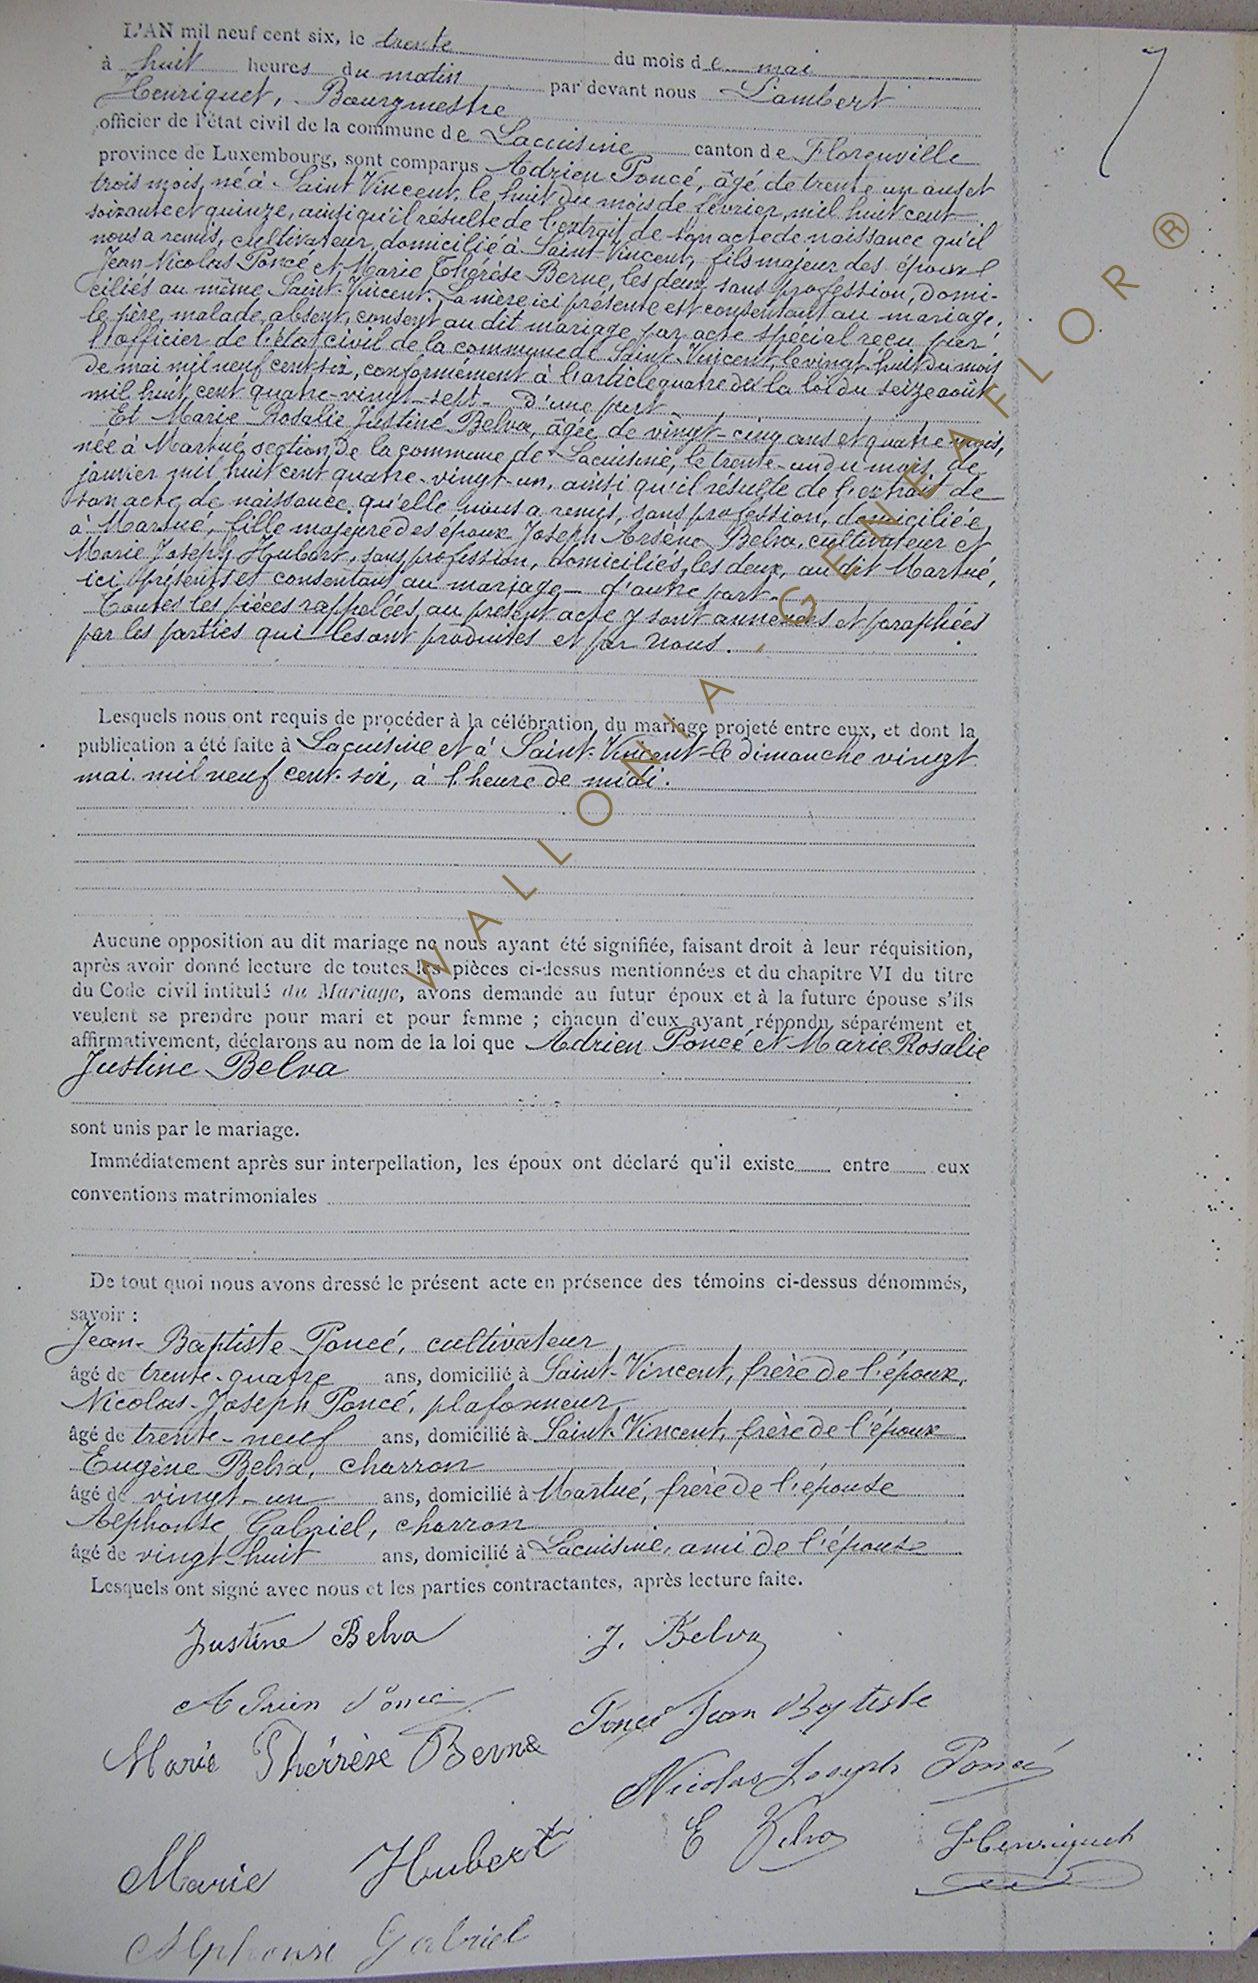 7
L'AN mil neuf cent six, le trente du mois de mai
à huit heures du matin par devant nous Lambert
Henriquet, Bourgmestre
officier de l'état civil de la commune de Lacuisine canton de Florenville
province de Luxembourg, sont comparus Adrien Poncé, âgé de trente un ans et
trois mois, né à Saint Vincent, le huit du mois de février, mil huit cent
soixante et quinze, ainsi qu'il résulte de l'extrait de son acte de naissance qu'il
nous a remis, cultivateur, domicilié à Saint-Vincent, fils majeur des époux
Jean Nicolas Poncé et Marie Thérèse Berne, les deux sans profession, domi-
ciliés au même Saint-Vincent. La mère ici présente et consentant au mariage,
le père, malade, absent, consent au dit mariage par acte spécial reçu par
l'officier de l'état civil de la commune de Saint-Vincent, le vingt-huit du mois
de mai mil neuf cent six, conformément à l'article quatre de la loi du seize août
mil huit cent quatre-vingt-sept - d'une part
Et Marie Rosalie Justine Belva, âgée de vingt-cinq ans et quatre mois,
née à Martué section de la commune de Lacuisine, le trente-un du mois de
janvier mil huit cent quatre-vingt-un, ainsi qu'il résulte de l'extrait de
son acte de naissance, qu'elle nous a remis, sans profession, domiciliée
à Martué, fille majeure des époux Joseph Arsène Belva, cultivateur et
Marie Joseph Hubert, sans profession, domiciliés, les deux, au dit Martué,
ici présents et consentant au mariage - d'autre part -
Toutes les pièces rappelées au présent acte y sont annexées et paraphées
par les parties qui les ont produites et par nous.
Lesquels nous ont requis de procéder à la célébration du mariage projeté entre eux, et dont la
publication a été faite à Lacuisine et à Saint-Vincent le dimanche vingt
mai mil neuf cent six, à l'heure de midi.
Aucune opposition au dit mariage ne nous ayant été signifiée, faisant droit à leur réquisition,
après avoir donné lecture de toutes les pièces ci-dessus mentionnées et du chapitre VI du titre
du Code civil intitulé du Mariage, avons demandé au futur époux et à la future épouse s'ils
veulent se prendre pour mari et pour femme ; chacun d'eux ayant répondu séparément et
affirmativement, déclarons au nom de la loi que Adrien Poncé et Marie Rosalie
Justine Belva
sont unis par le mariage.
Immédiatement après sur interpellation, les époux ont déclaré qu'il existe entre eux
conventions matrimoniales
De tout quoi nous avons dressé le présent acte en présence des témoins ci-dessus dénommés,
savoir :
Jean-Baptiste Poncé, cultivateur
âgé de trente-quatre ans, domicilié à Saint-Vincent, frère de l'époux,
Nicolas-Joseph Poncé, plafonneur
âgé de trente-neuf ans, domicilié à Saint-Vincent, frère de l'époux
Eugène Belva, charron
âgé de vingt-un ans, domicilié à Martué, frère de l'épouse
Alphonse Gabriel, charron
âgé de vingt-huit ans, domicilié à Lacuisine, ami de l'épouse
Lesquels ont signé avec nous et les parties contractantes, après lecture faite.
Justine Belva J. Belva
Adrien Poncé Poncé Jean Baptiste
Marie Thérèse Berne Nicolas Joseph Poncé
Marie Hubert E Belva LHenriquet
Alphonse Gabriel
WALLONIA - GENEAFLOR ®